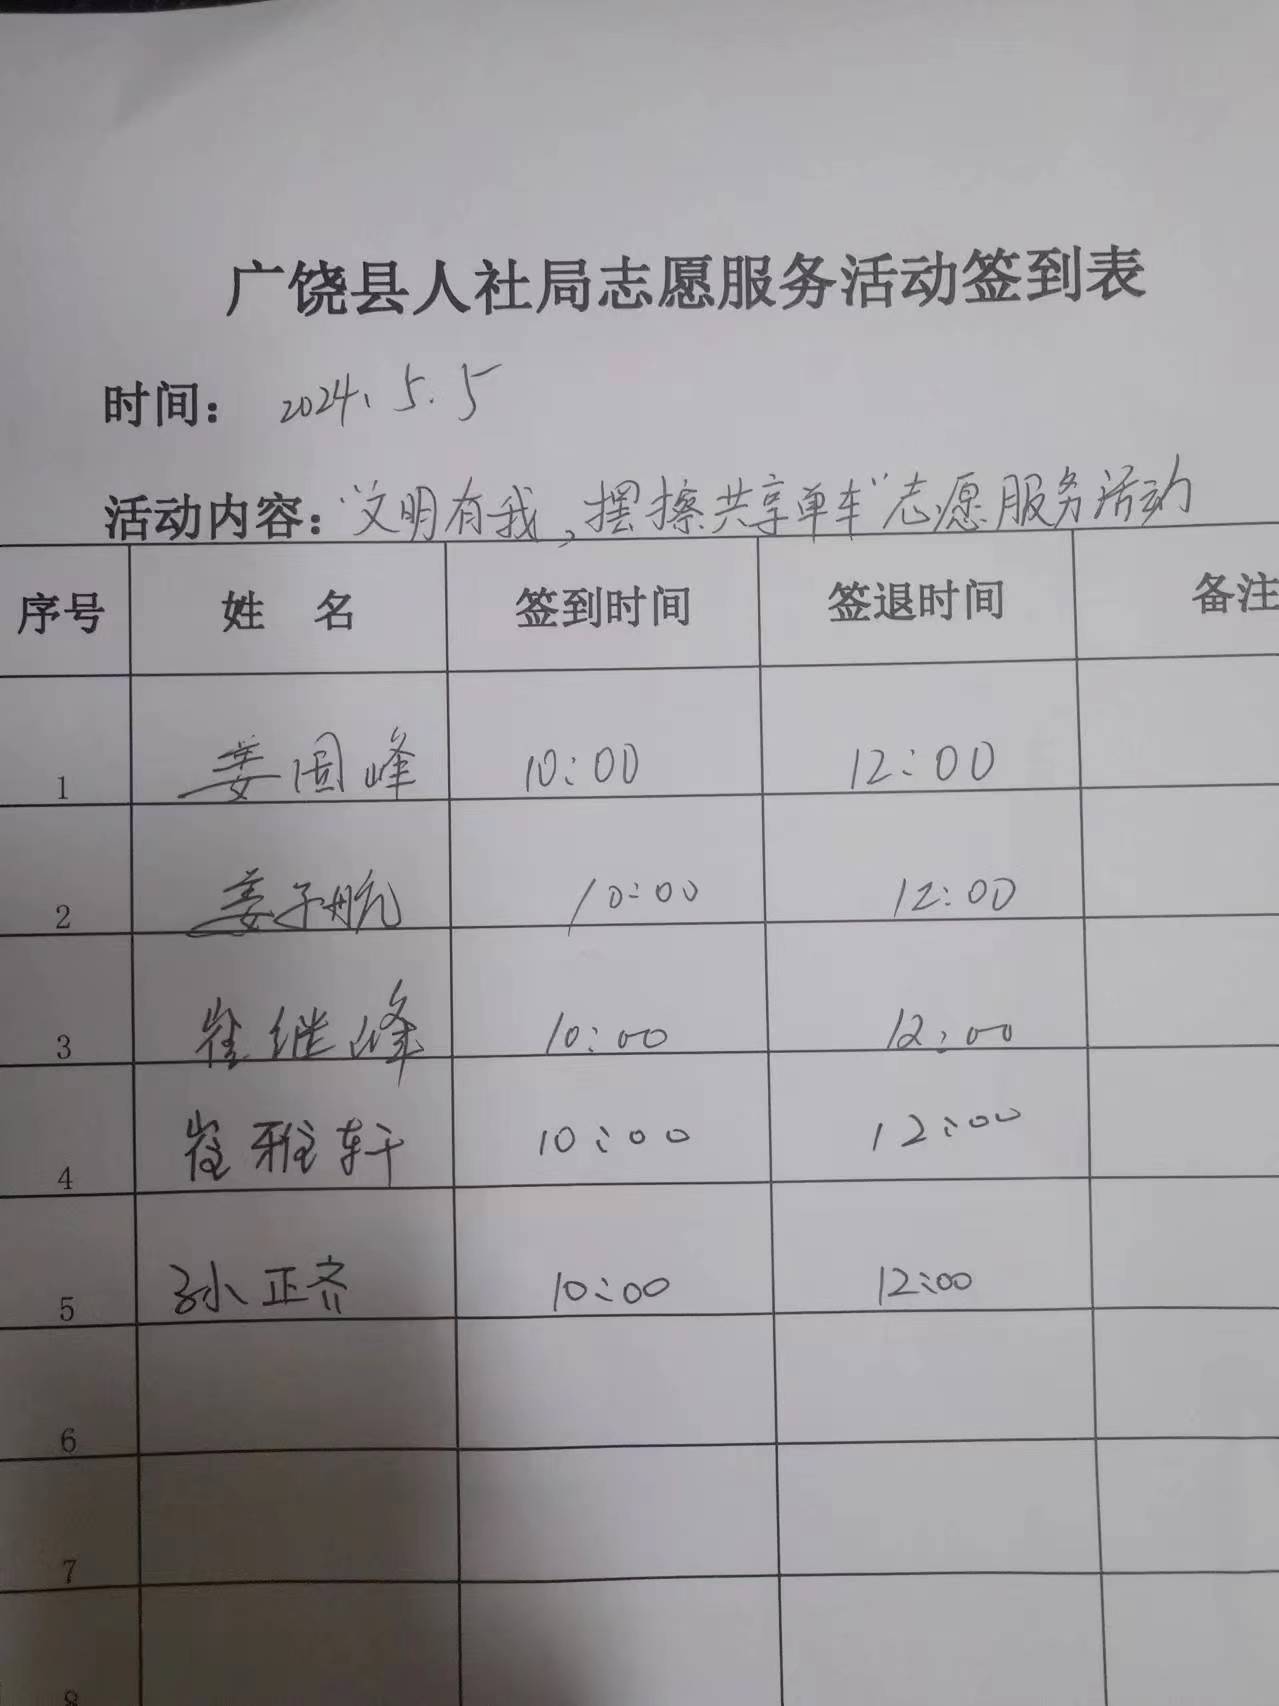 广饶县人社局志愿服务活动签到表
时间： 2024.5.5
活动内容：“文明有我，摆擦共享单车”志愿服务活动
序号 姓 名 签到时间 签退时间 备注
1 姜国峰 10:00 12:00
2 姜子航 10:00 12:00
3 崔继峰 10:00 12:00
4 崔雅轩 10:00 12:00
5 孙正齐 10:00 12:00
6
7
8